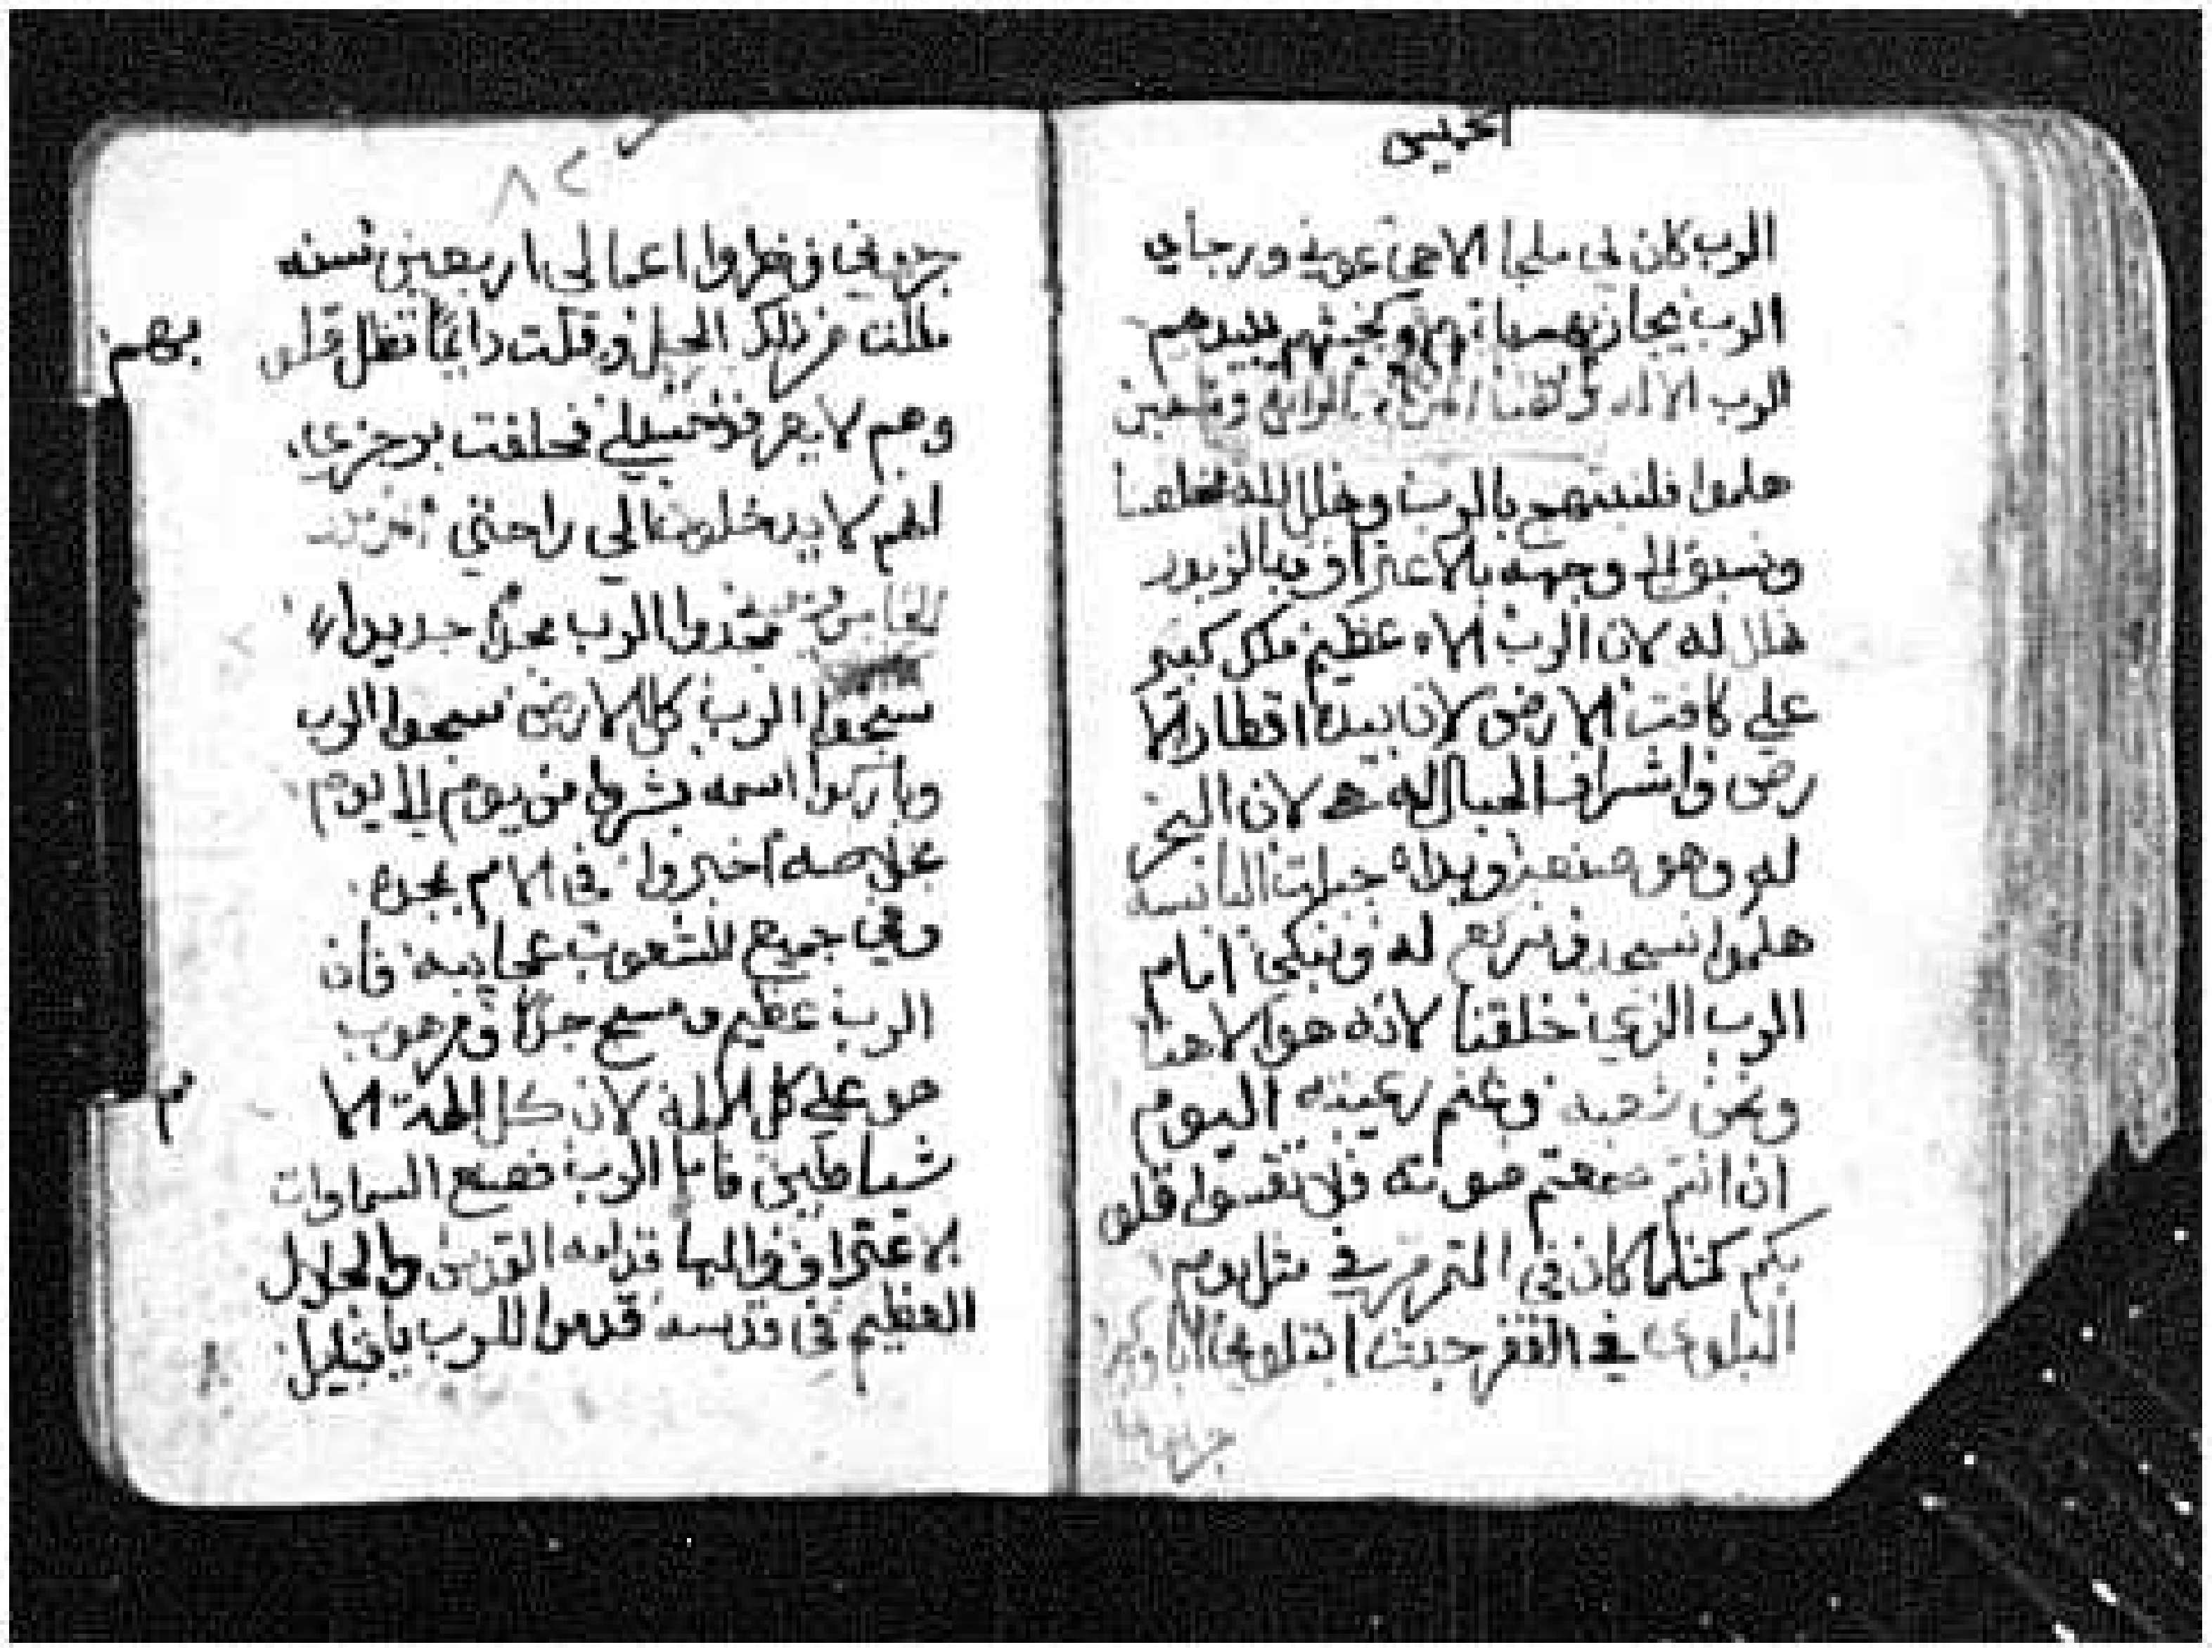 الخميس
الرب كان لي ملجا الاهي عوني ورجاي
الرب يجازيهم باثمهم وبخبثهم يبيدهم
الرب الاله
هلموا فلنبتهج بالرب ونهلل لله مخلصنا
ونسبق الى وجهه بالاعتراف وبالزبور
نهلل له لان الرب الاه عظيم ملك كبير
علي كافت الارض لان بيده اقطار الا
رض واشراف الجبال له هي لان البحر
له وهو صنعه ويداه جبلت اليابسه
هلموا نسجد ونركع له ونبكي امام
الرب الذي خلقنا لانه هو الاهنا
ونحن شعبه وغنم رعيته اليوم
ان انتم سمعتم صوته فلا تقسوا قلو
بكم كمثلما كان في التمرمر في مثل يوم
البلوي في القفر حيث ابتلوني اباوكم
جربوني
٨٢
جربوني ونظروا اعمالي اربعين سنه
مللت من ذلك الجيل وقلت دايما تضل قلو
بهم
وهم لا يعرفون سبلي فحلفت برجزي
انهم لا يدخلون الي راحتي
مجدوا الرب مجدا جديدا
سبحوا الرب كل الارض سبحوا الرب
وباركوا اسمه بشروا من يوم الي يوم
بخلاصه اخبروا في الامم بمجده
وفي جميع الشعوب عجايبه فان
الرب عظيم ومسبح جدا ومرهوب
هو علي كل الالهة لان كل الهة الا
مم
شياطين فاما الرب فصنع السماوات
الاعتراف والبها قدامه القدس والجلال
العظيم في قدسه قدموا للرب يا قبايل